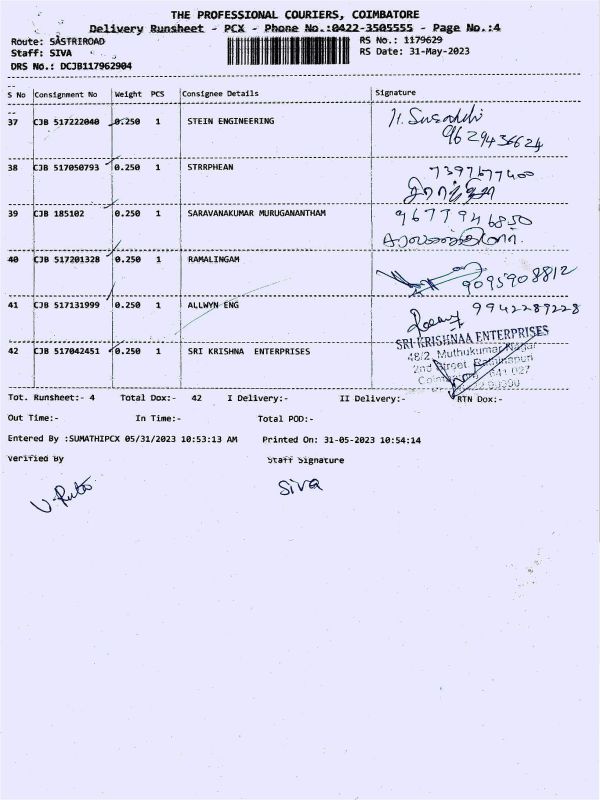 THE PROFESSIONAL COURIERS, COIMBATORE
Delivery Runsheet - PCX - Phone No.:0422-3505555 - Page No.:4
Route: SASTRIROAD
RS No.: 1179629
Staff: SIVA
RS Date: 31-May-2023
DRS No.: DCJB117962904
S No Consignment No Weight PCS Consignee Details Signature
37 CJB 517222040 0.250 1 STEIN ENGINEERING
9629436624
38 CJB 517050793 0.250 1 STRRPHEAN
7397677400
39 CJB 185102 0.250 1 SARAVANAKUMAR MURUGANANTHAM
9677946850
40 CJB 517201328 0.250 1 RAMALINGAM
9095908812
41 CJB 517131999 0.250 1 ALLWYN ENG
9942289228
42 CJB 517042451 0.250 1 SRI KRISHNA ENTERPRISES
SRI KRISHNAA ENTERPRISES
48/2, Muthukumar Nagar
2nd Street, Rathinapuri
641 027
Tot. Runsheet:- 4 Total Dox:- 42 I Delivery:- II Delivery:- RTN Dox:-
Out Time:- In Time:- Total POD:-
Entered By :SUMATHIPCX 05/31/2023 10:53:13 AM Printed On: 31-05-2023 10:54:14
Verified By Staff Signature
Siva